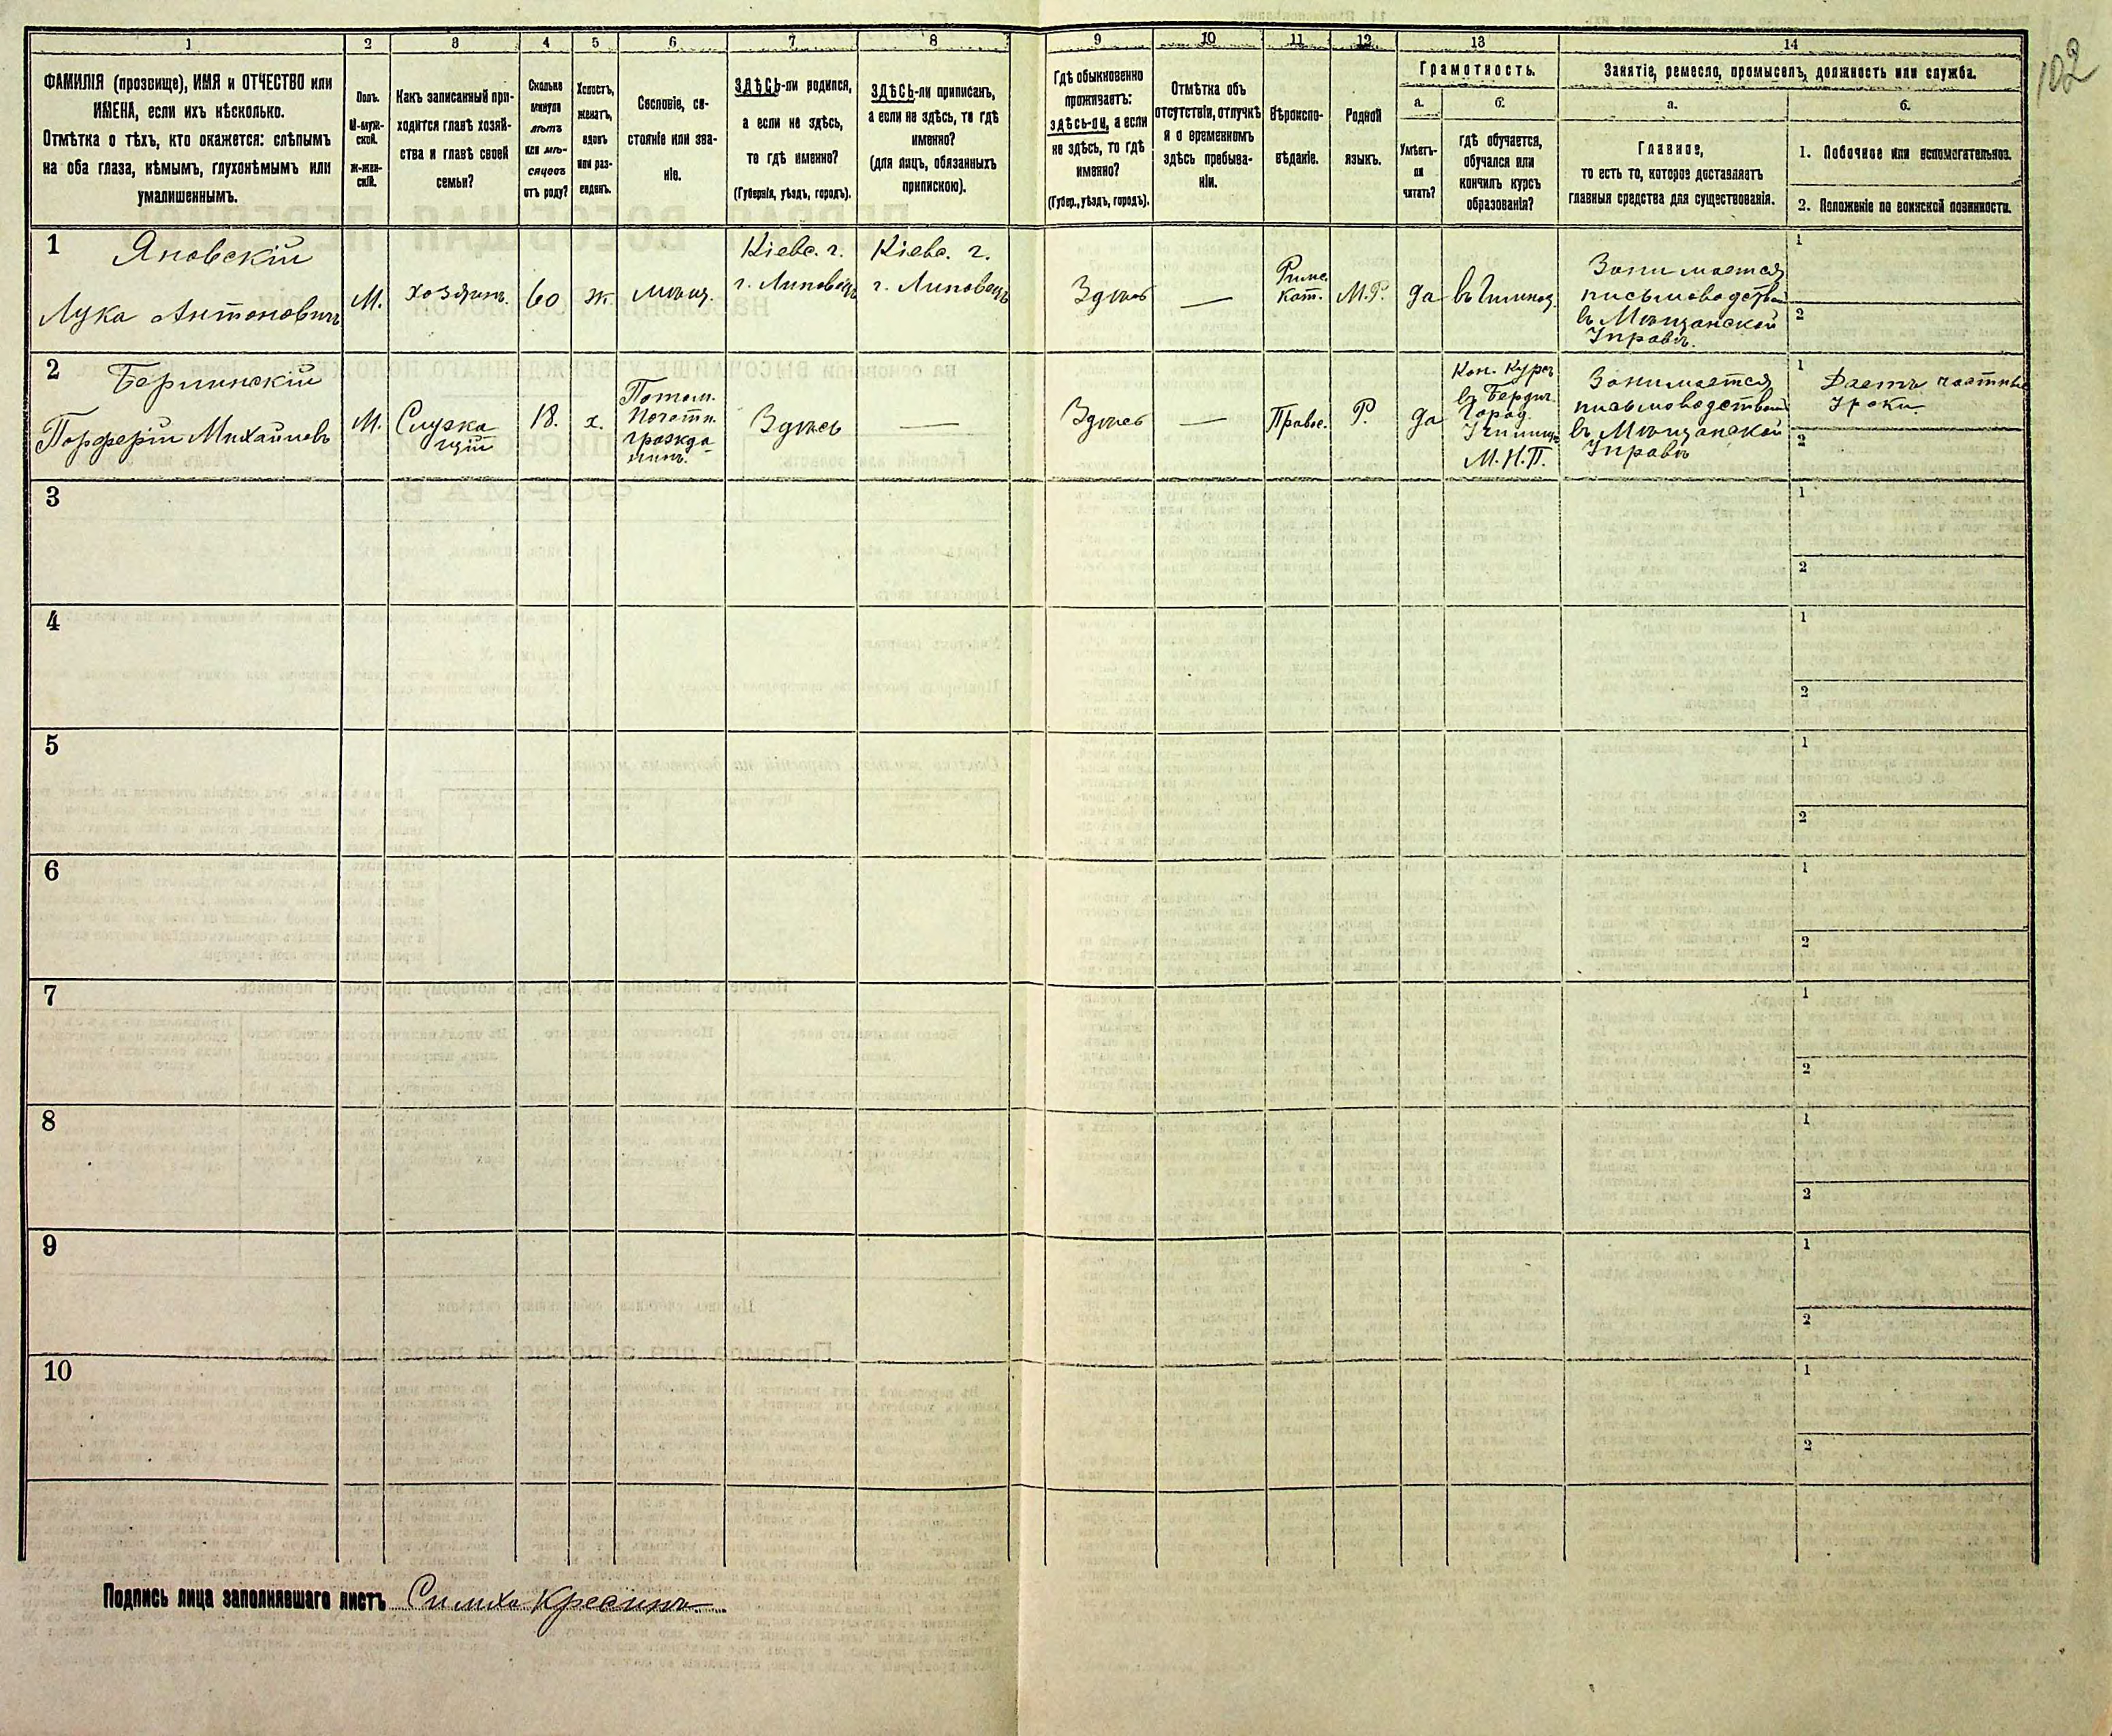 102
1
2
3
4
5
6
7
8
9
10
11
12
13
14
ФАМИЛІЯ (прозвище), ИМЯ и ОТЧЕСТВО или
ИМЕНА, если ихъ нѣсколько.
Отмѣтка о тѣхъ, кто окажется: слѣпымъ
на оба глаза, нѣмымъ, глухонѣмымъ или
умалишеннымъ.
Полъ.
М-муж-
ской.
ж-жен-
скій.
Какъ записанный при-
ходится главѣ хозяй-
ства и главѣ своей
семьи?
Сколько
минуло
лѣтъ
или мѣ-
сяцевъ
отъ роду?
Холостъ,
женатъ,
вдовъ
или раз-
веденъ.
Сословіе, со-
стояніе или зва-
ніе.
ЗДѢСЬ-ли родился,
а если не здѣсь,
то гдѣ именно?
(Губернія, уѣздъ, городъ).
ЗДѢСЬ-ли приписанъ,
а если не здѣсь, то гдѣ
именно?
(для лицъ, обязанныхъ
припискою).
Гдѣ обыкновенно
проживаетъ:
здѣсь-ли, а если
не здѣсь, то гдѣ
именно?
(Губер., уѣздъ, городъ).
Отмѣтка объ
отсутствіи, отлучкѣ
и о временномъ
здѣсь пребыва-
ніи.
Вѣроиспо-
вѣданіе.
Родной
языкъ.
Грамотность.
а.
Умѣетъ-
ли
читать?
б.
гдѣ обучается,
обучался или
кончилъ курсъ
образованія?
Занятіе, ремесло, промыселъ, должность или служба.
а.
Главное,
то есть то, которое доставляетъ
главныя средства для существованія.
б.
1. Побочное или вспомогательное.
2. Положеніе по воинской повинности.
1 Яновскій
Лука Антоновичъ
М.
хозяинъ.
60
ж
мѣщ.
Кіевс. г.
г. Липовецъ
Кіевс. г.
г. Липовецъ
Здѣсь
—
Римс.
кат.
М.Р.
да
въ Гимназ.
Занимается
письмоводствомъ
въ Мѣщанской
Управѣ.
1
2
2 Берлинскій
Порферій Михайловъ
М.
Служа
щій
18.
х.
Потом.
Почотн.
гражда-
нинъ.
Здѣсь
—
Здѣсь
—
Правос.
Р.
да
Кон. Курсъ
въ Бердич.
Город.
Училищѣ
М. Н. П.
Занимается
письмоводствомъ
въ Мѣщанской
Управѣ
1 Даетъ частные
Уроки
2
3
1
2
4
1
2
5
1
2
6
1
2
7
1
2
8
1
2
9
1
2
10
1
2
Подпись лица заполнявшаго листъ Симха Красикъ